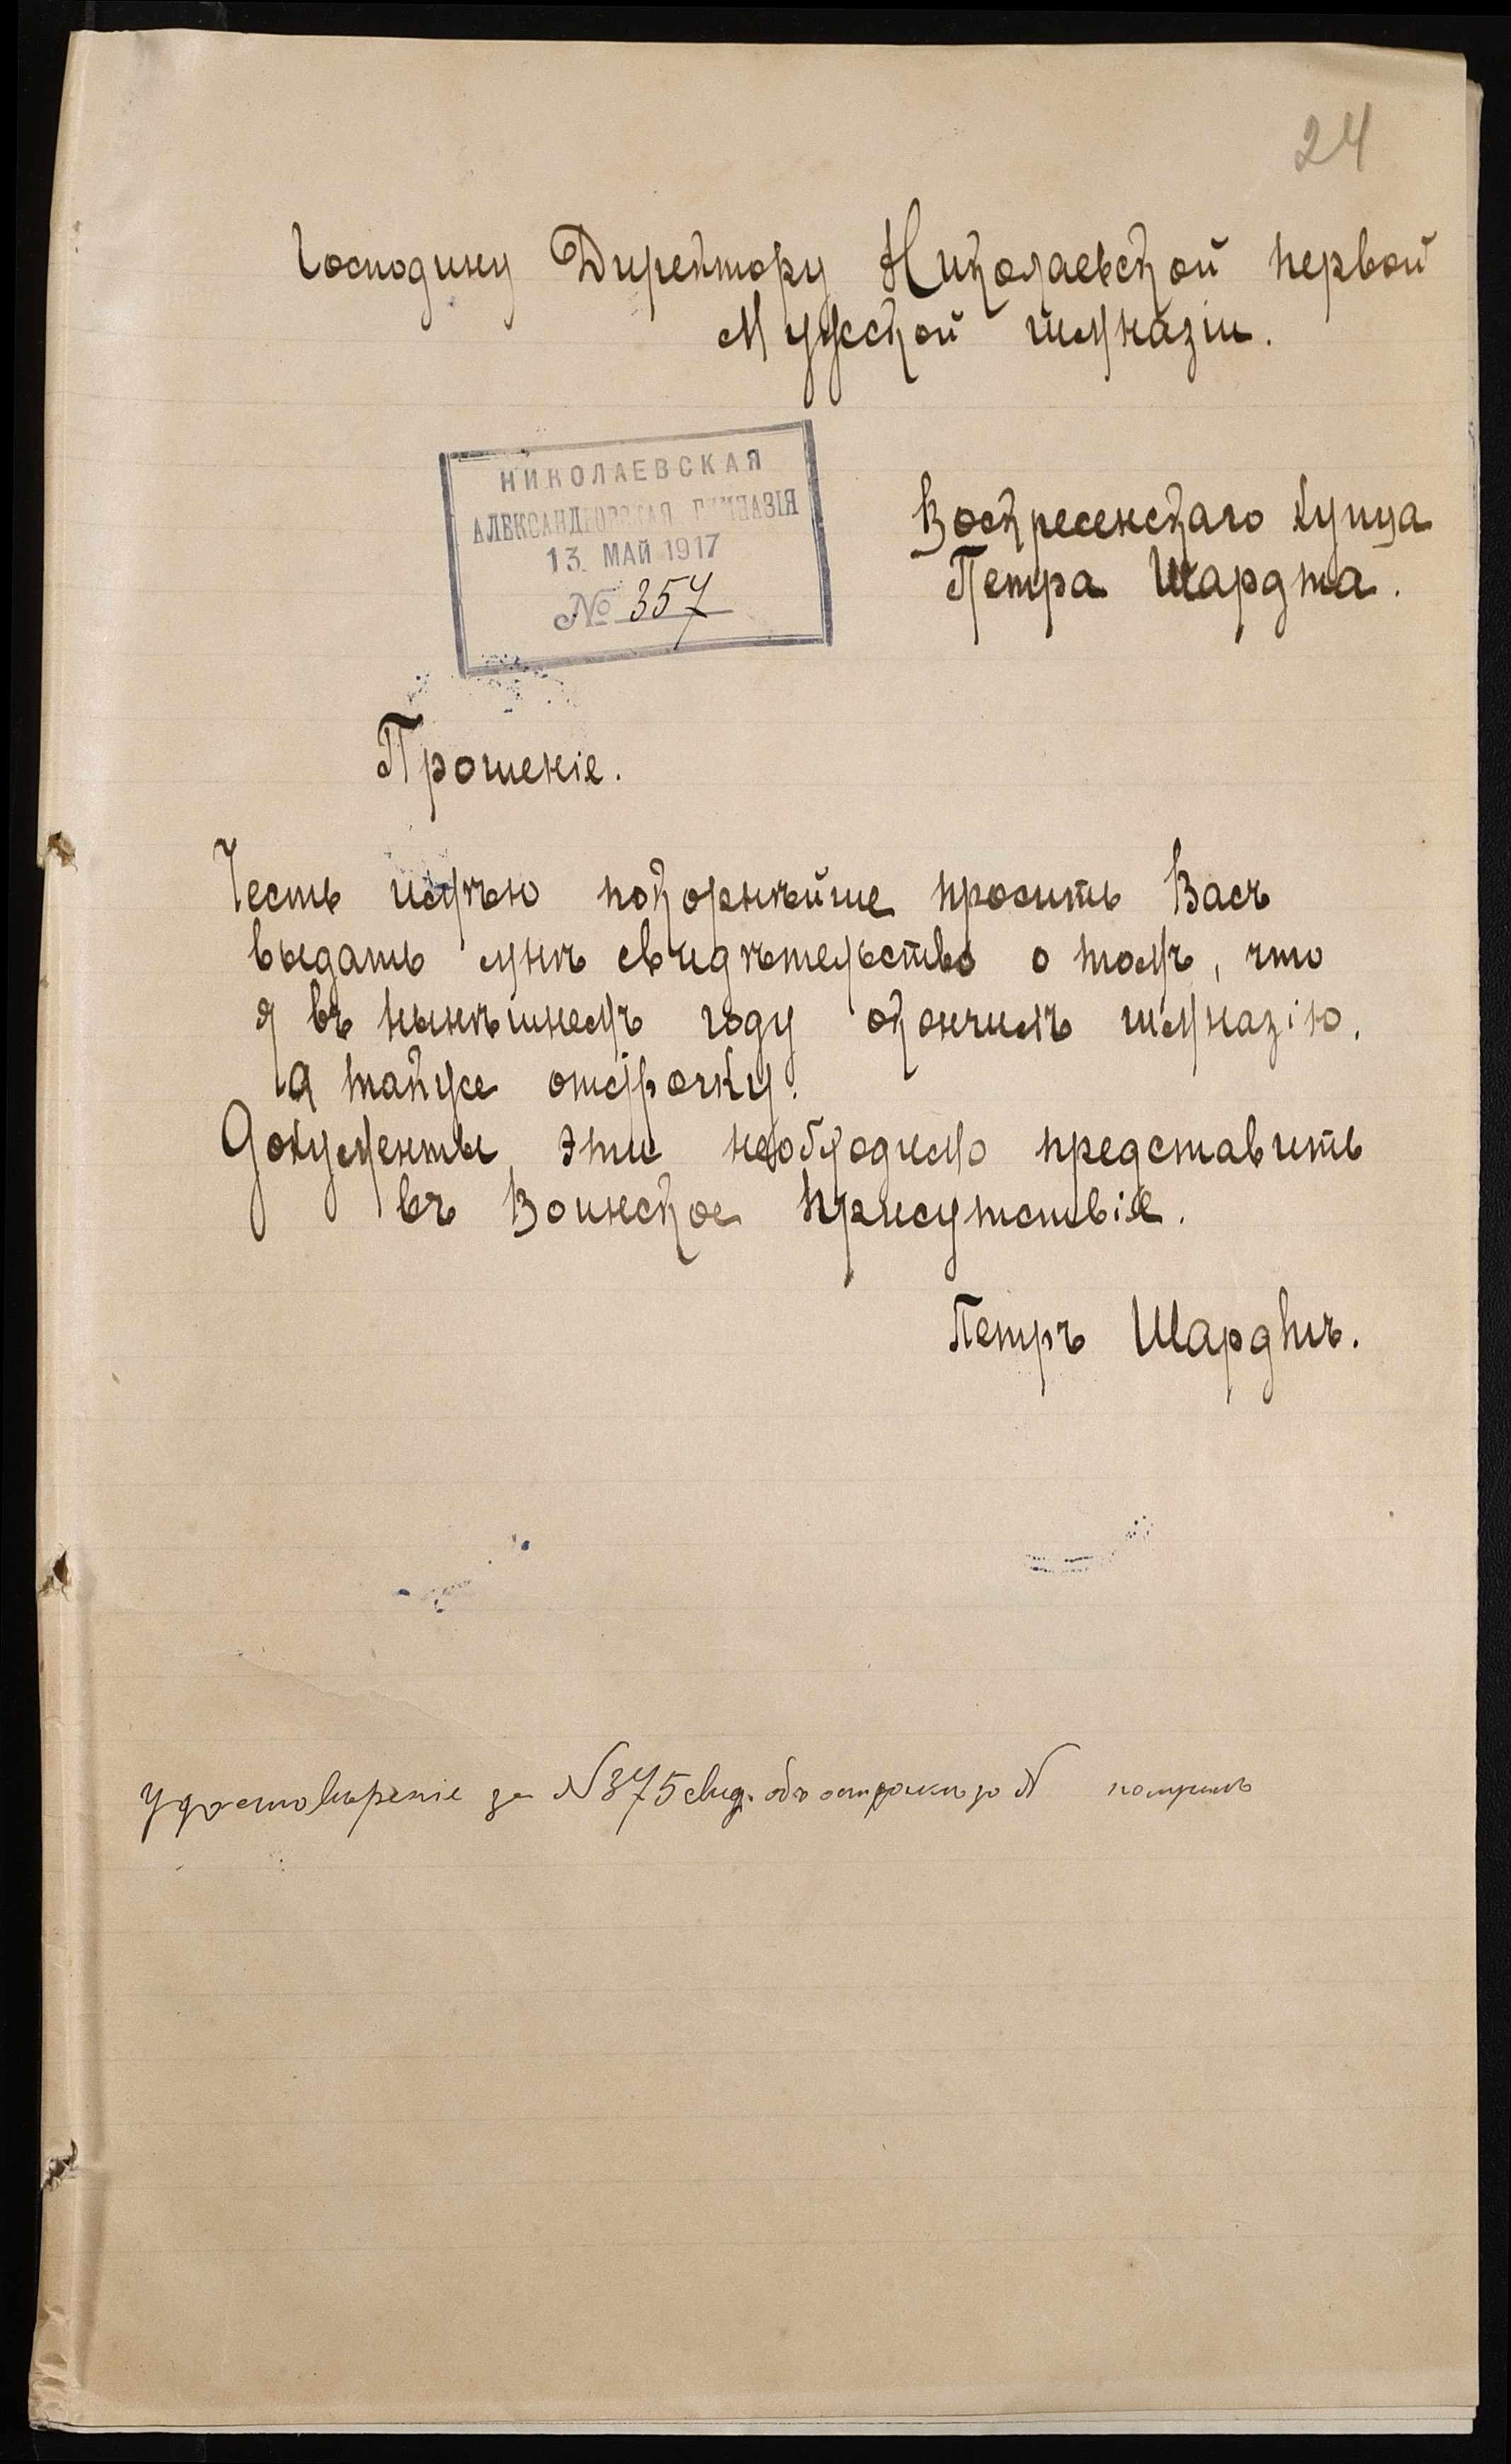 24
Господину Директору Николаевской первой
Мужской гимназіи.
НИКОЛАЕВСКАЯ
АЛЕКСАНДРОВСКАЯ ГИМНАЗІЯ
13 МАЙ 1917
№ 357
Воскресенскаго купца
Петра
Прошеніе.
Честь имѣю покорнѣйше просить Васъ
выдать мнѣ свидѣтельство о томъ, что
я въ нынѣшнемъ году окончилъ гимназію,
а также отсрочку.
Документы эти необходимо представить
въ Воинское присутствіе.
Петръ
Удостовѣреніе за №375 свид. объ отсрочкѣ за № получилъ